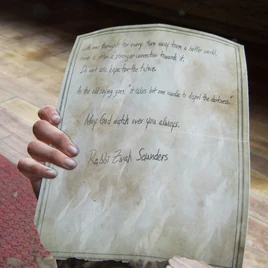 with one thought for every turn away from a better world,
there is often a stronger connection towards it.
Do not lose hope for the future.
As the old saying goes, "it takes but one candle to dispel the darkness."
May God watch over you always.
Rabbi Zivah Saunders